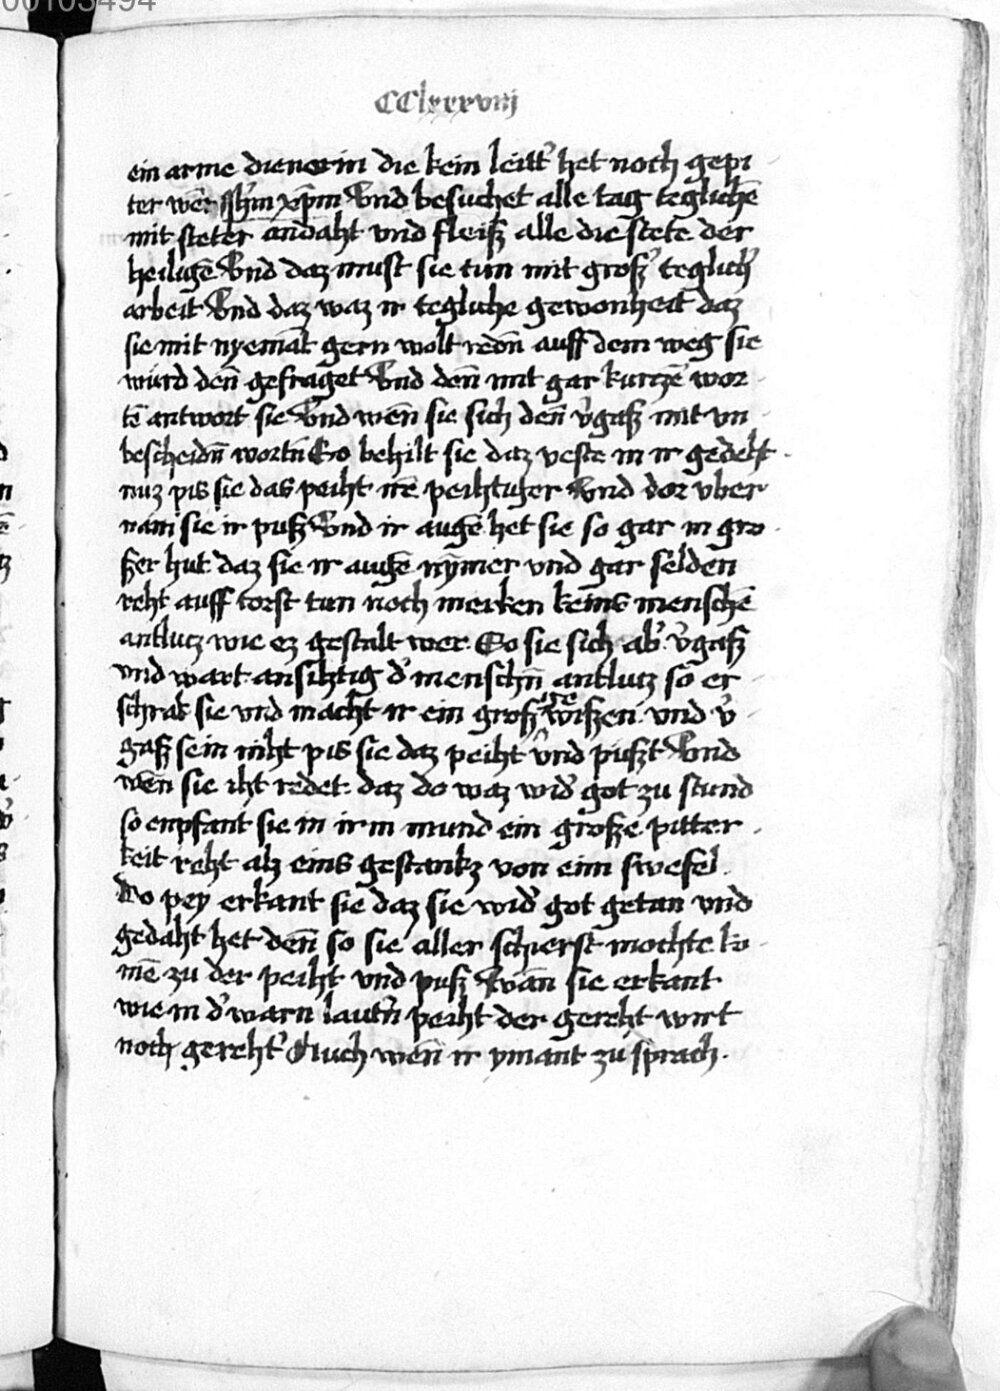 00103494
CClxxxviij
ein arme dienerin die kein leitt' het noch gepi
ter wēr Jh̄m xp̄m Vnd besuchet alle tag teglichē
mit steter andaht vnd fleiß alle die stete der
heiligē Vnd daz must sie tun mit groß' teglich'
arbeit Vnd daz waz ir tegliche gewonheit daz
sie mit nyemāt gern wolt redn̄ auff dem weg sie
würd den̄ gefraget Vnd den̄ mit gar kurtzē wor
tē antwort sie Vnd wen̄ sie sich den̄ v'gaß mit vn
bescheidn̄ wortn̄ So behilt sie daz veste in ir gedeht
nuz pis sie das peiht irē peihtiger Vnd dor vber
nam sie ir puß Vnd ir augē het sie so gar in gro
ßer hut daz sie ir augē nȳmer vnd gar selden
reht auff torst tun noch merken keins menschē
antlutz wie ez gestalt wer So sie sich ab' v'gaß
vnd wart ansihtig d' menschn̄ antlutz so er
schrak sie vnd macht ir ein groß ire wißen vnd v'
gaß sein niht pis sie daz peiht vnd pußt Vnd
wen̄ sie iht redet daz do waz wid' got zu stund
so enpfant sie in irm mund ein große pitter
keit reht alz eins gestankz von eim swefel
Do pey erkant sie daz sie wid' got getan vnd
gedaht het den̄ so sie aller schierst mochte ko
mē zu der peiht vnd puß Wan̄ sie erkant
wie in d' warn lautn̄ peiht der gereht wirt
noch gereht' Auch wen̄ ir ymant zu sprach